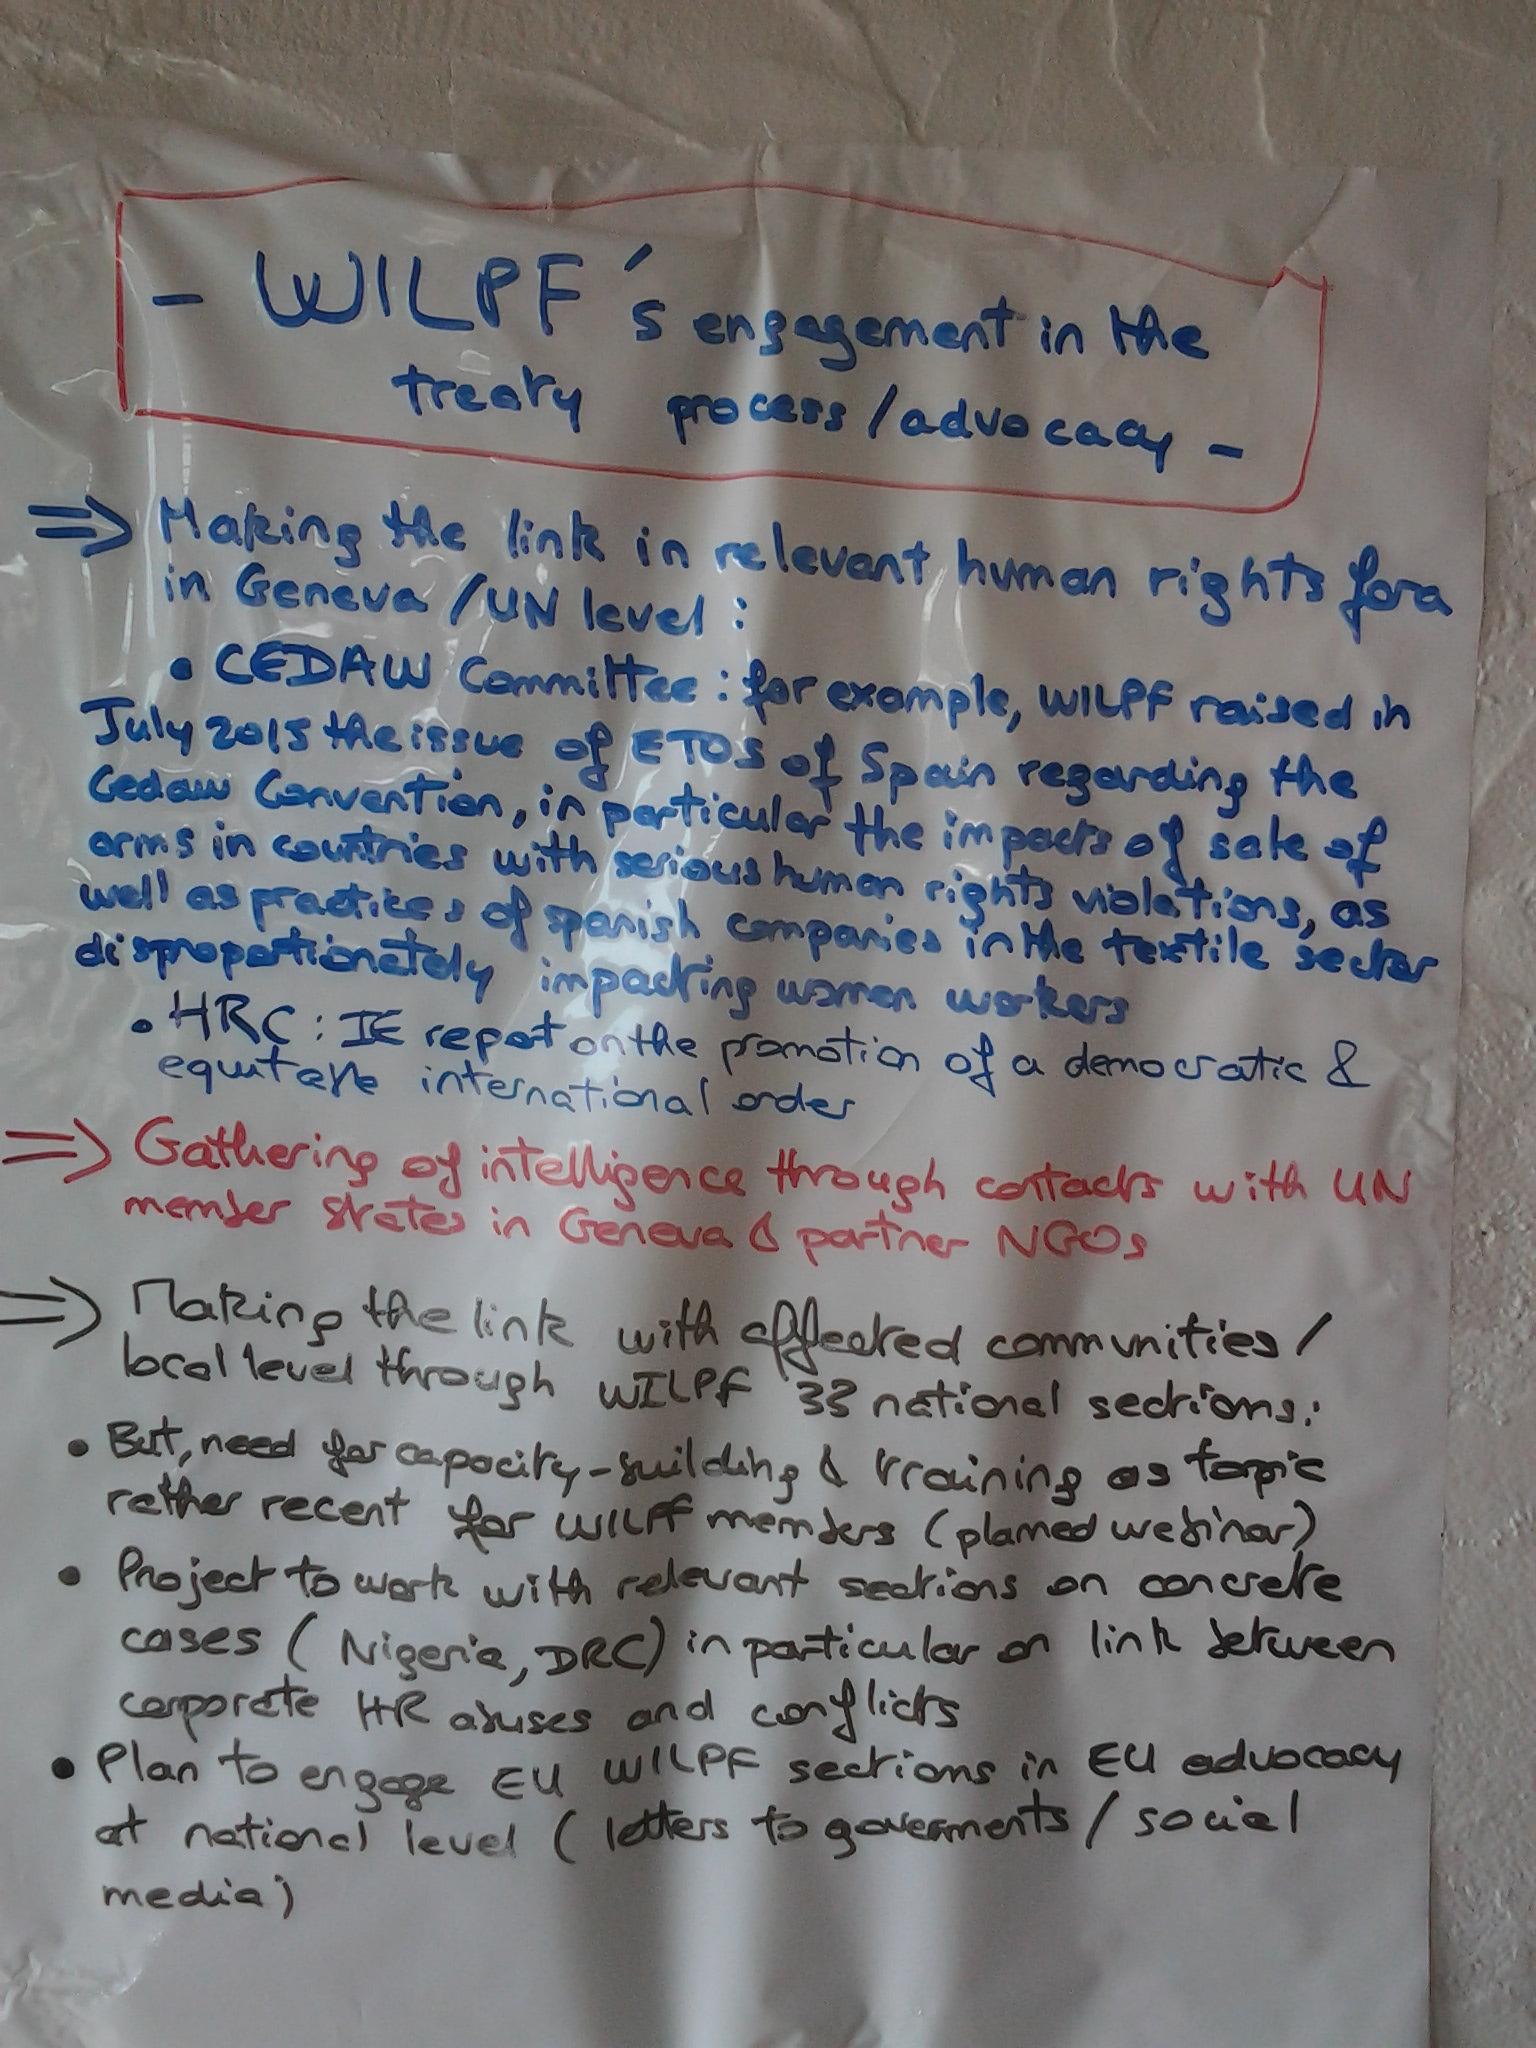 - WILPF's engagement in the
treaty process/advocacy -
⇒ Making the link in relevant human rights fora
in Geneva/UN level:
• CEDAW Committee: for example, WILPF raised in
July 2015 the issue of ETOS of Spain regarding the
Cedaw Convention, in particular the impacts of sale of
arms in countries with serious human rights violations, as
well as practices of spanish companies in the textile sector
disproportionately impacting women workers
• HRC: IE report on the promotion of a democratic &
equitable international order
⇒ Gathering of intelligence through contacts with UN
member states in Geneva & partner NGOs
⇒ Making the link with affected communities/
local level through WILPF 33 national sections:
• But, need for capacity-building & training as topic
rather recent for WILPF members (planned webinar)
• Project to work with relevant sections on concrete
cases (Nigeria, DRC) in particular on link between
corporate HR abuses and conflicts
• Plan to engage EU WILPF sections in EU advocacy
at national level (letters to governments/social
media)